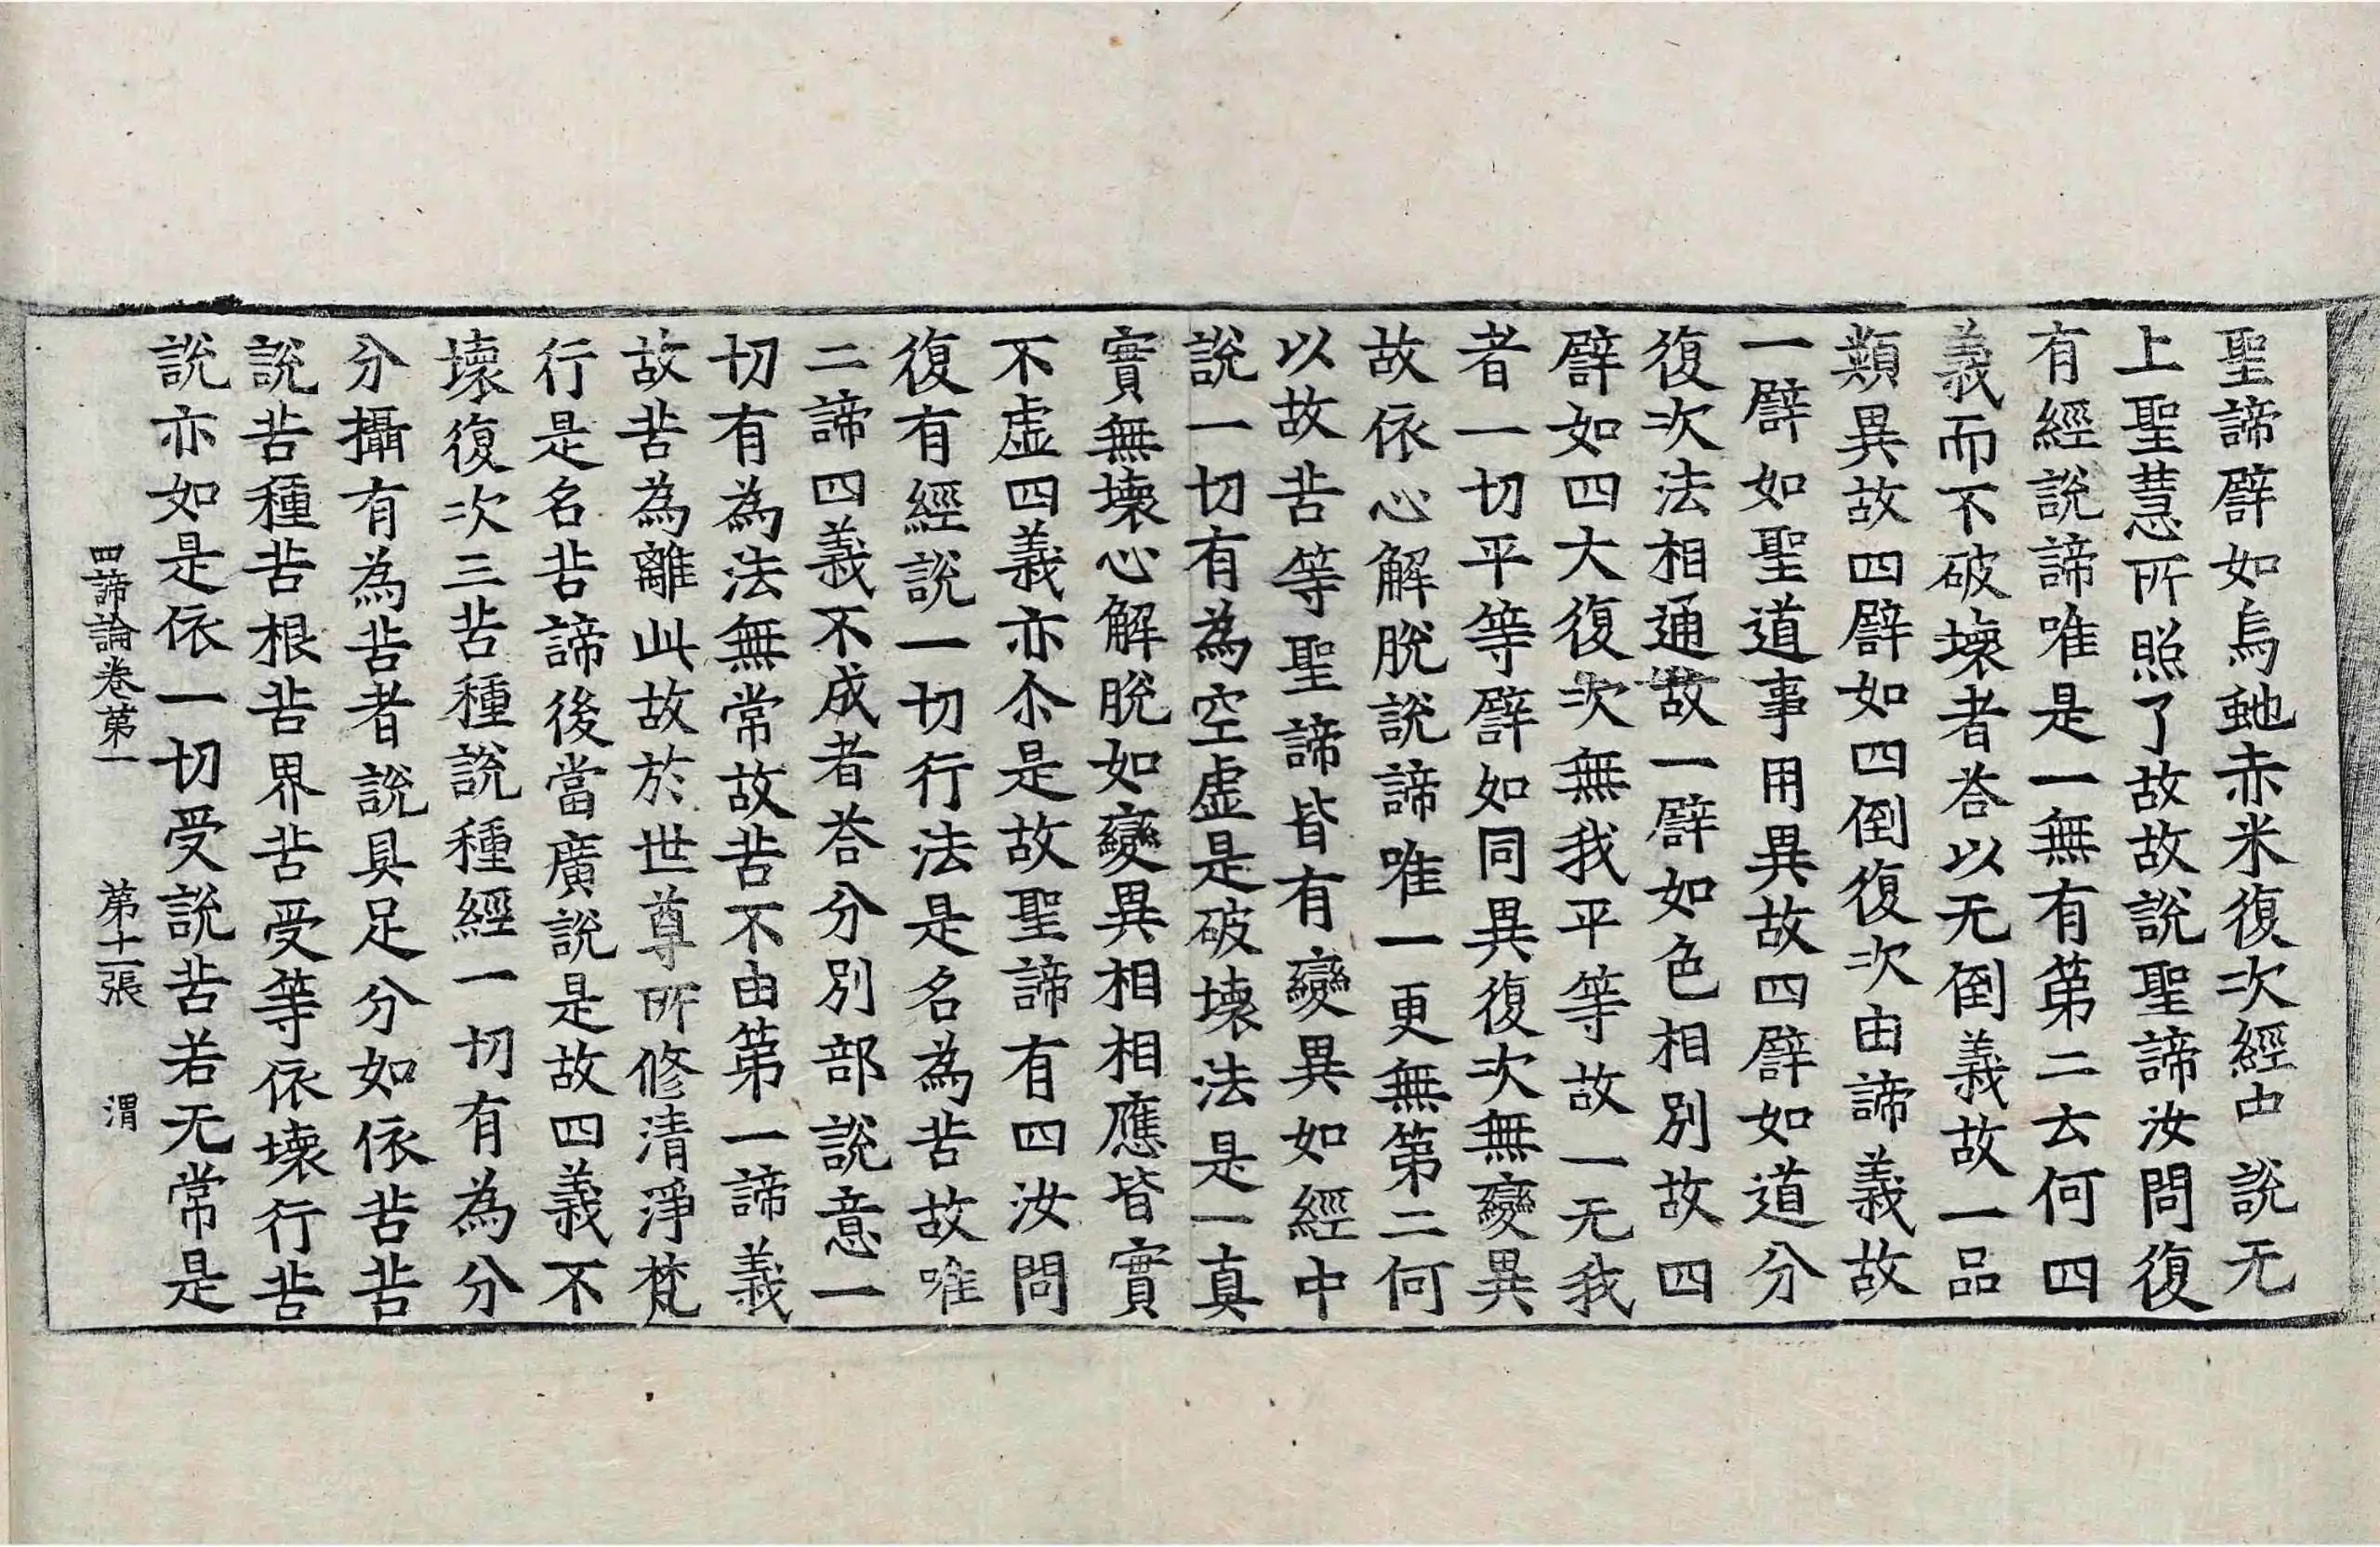 聖諦譬如烏虵赤米復次經中說无
上聖慧所照了故故說聖諦汝問復
有經說諦唯是一無有第二云何四
義而不破壞者荅以无倒義故一品
類異故四譬如四倒復次由諦義故
一譬如聖道事用異故四譬如道分
復次法相通故一譬如色相別故四
譬如四大復次無我平等故一无我
者一切平等譬如同異復次無變異
故依心解脫說諦唯一更無第二何
以故苦等聖諦皆有變異如經中
說一切有為空虛是破壞法是一真
實無壞心解脫如變異相相應皆實
不虛四義亦尒是故聖諦有四汝問
復有經說一切行法是名為苦故唯
二諦四義不成者荅分別部說意一
切有為法無常故苦不由第一諦義
故苦為離此故於世尊所修清淨梵
行是名苦諦後當廣說是故四義不
壞復次三苦種說種經一切有為分
分攝有為苦者說具足分如依苦苦
說苦種苦根苦界苦受等依壞行苦
說亦如是依一切受說苦若无常是
四諦論卷第一 第十一張 渭